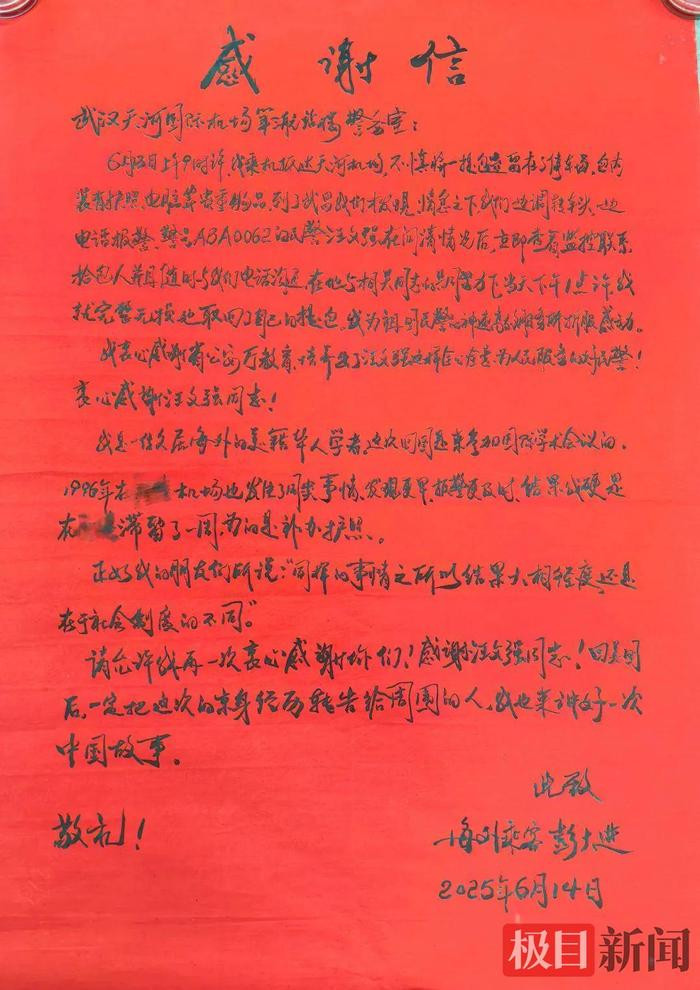 感谢信
武汉天河国际机场 航站楼警务室:
6月 日上午9时许,我乘机抵达天河机场,不慎将一提包遗留在了停车场,包内
装有护照、电脑等贵重物品,到了武昌我们才发现,情急之下我们边调转车头,边
电话报警,警号ABA0062的民警汪文强在问清情况后,立即查看监控联系
拾包人并且随时与我们电话沟通,在他与相关同志的共同努力下,当天下午1点许,我
就完整无损地取回了自己的提包,我为祖国民警的神速 折服、感动。
我衷心感谢省公安厅教育、培养出了汪文强这样全心全意为人民服务的好民警!
衷心感谢汪文强同志!
我是一位久居海外的美籍华人学者,这次回国是来参加国际学术会议的,
1996年在 机场也发生了同类事情,发现更早,报警更及时,结果我硬是
在 滞留了一周,为的是补办护照。
正如我的朋友们所说:“同样的事情之所以结果大相径庭,还是
在于社会制度的不同”。
请允许我再一次衷心感谢你们!感谢汪文强同志!回美国
后,一定把这次的亲身经历转告给周围的人,我也来讲好一次
中国故事。
此致
敬礼!
海外乘客 彭大进
2025年6月14日
极目新闻